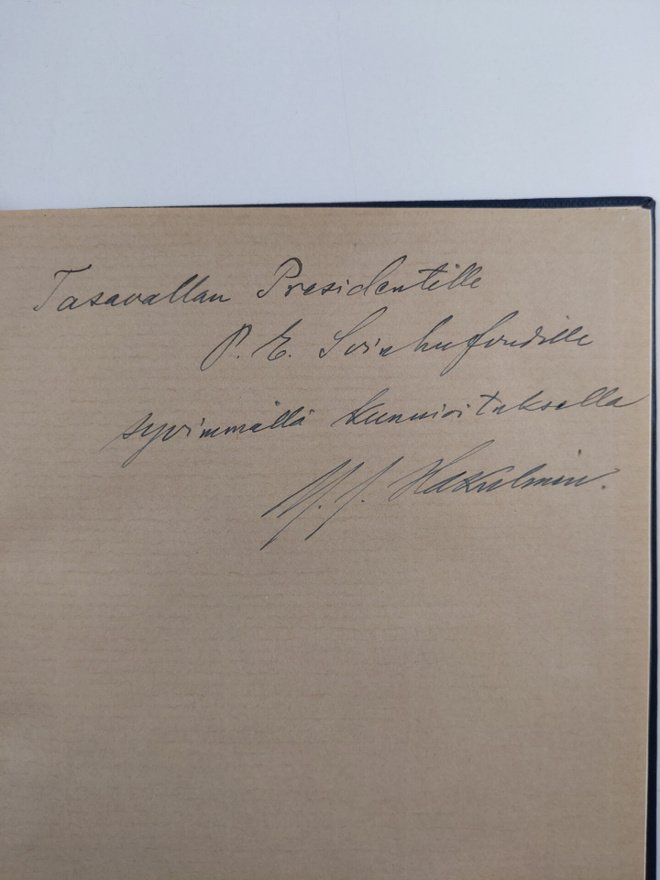 Tasavallan Presidentille
P. E. Svinhufvudille
syvimmällä kunnioituksella